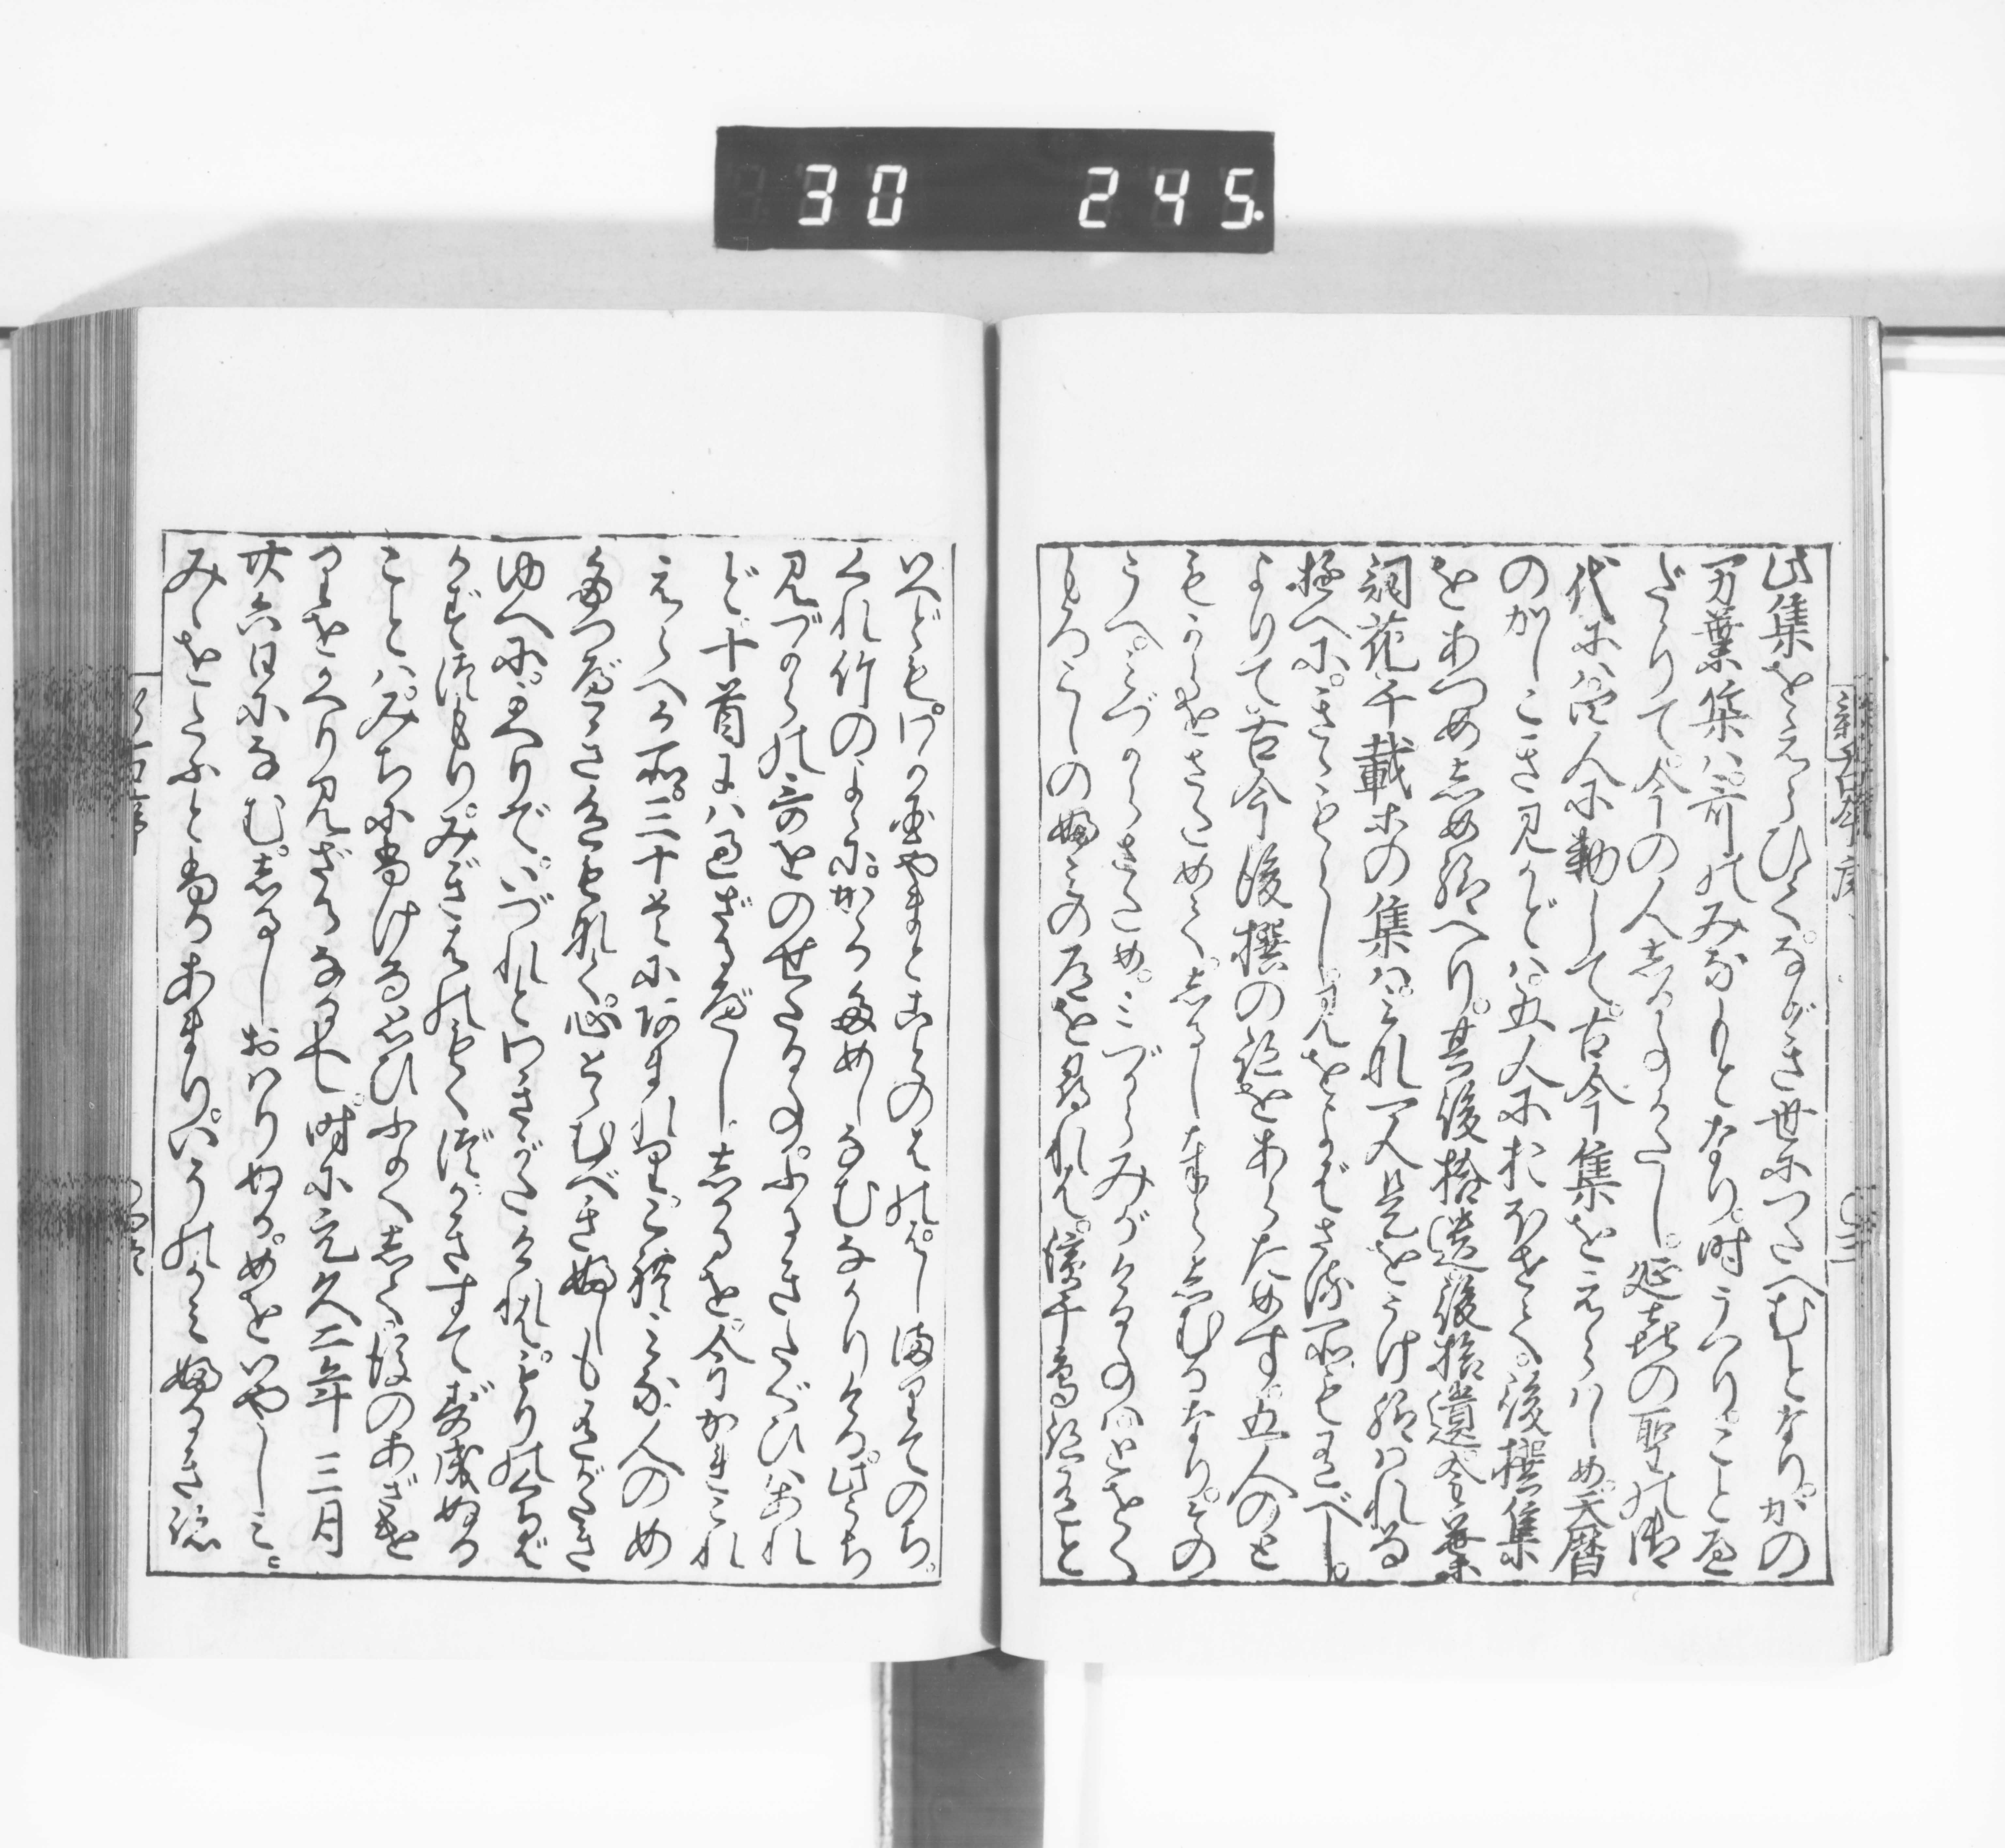 30 245
新古今序
此集をえらひて。ながき世につたへむとなり。かの
万葉集は。哥のみなもとなり。時うつり。ことへ
だゝりて。今の人しることかたし。延喜の聖の御
代には。四人に勅して。古今集をえらはしめ。天暦
のかしこきみかどは。五人におほせて。後撰集
をあつめしめ給へり。其後拾遺後拾遺金葉
詞花千載等の集は。みな一人是をうけ給はれる
ゆへに。きゝもらし。見をよばざる所も有べし。
よりて古今後撰の跡をあらためす。五人のと
もからをさためて。しるし奉らしむるなり。その
うへ。みづからさため。みづからみがけることは。とをく
もろこしの文の道を尋れは。濱千鳥跡有と
いへども。わが国やまとことのはゝしまりてのち。
くれ竹のよゝに。かゝるためしなむなかりける。此うち
みづからの哥をのせたること。ふるきたぐひはあれ
ど。十首には過ざるべし。しかるを。今かれこれ
えらへる所。三十首にあまれり。これみな人のめ
たつべき色もなく。心とゝむべきふしも有がたき
ゆへに。かへりて。いづれとわきがたければ。もりのくち葉
かずつもり。みぎはのもくずかきすてず成ぬる
ことは。みちにふけるおもひふかくして。後のあざけり
をかへり見ざるなるべし。時に元久二年三月
廿六日になむ。しるしおはりぬる。めをいやしみ。
みゝをたふとぶるあまり。いそのかみふるき跡